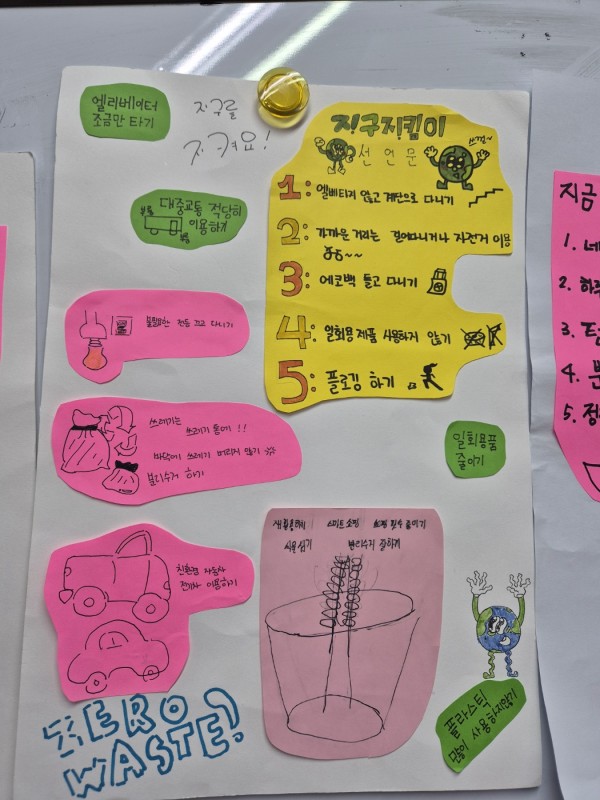 엘리베이터
조금만 타기
지구를
지켜요!
대중교통 적당히
이용하기
지구지킴이
선언문
1: 엘베타지 않고 계단으로 다니기
2: 가까운 거리는 걸어다니거나 자전거 이용
3: 에코백 들고 다니기
4: 일회용 제품 사용하지 않기
5: 플로깅 하기
불필요한 전등 끄고 다니기
쓰레기는
쓰레기 통에!!
바닥에 쓰레기 버리지 않기
분리수거 하기
일회용품
줄이기
친환경 자동차
전기차 이용하기
식물심기
분리수거 잘하기
플라스틱
많이 사용하지않기
ZERO
WASTE?
지금
1. 네
2. 하루
3. 텀
4. 분
5. 정